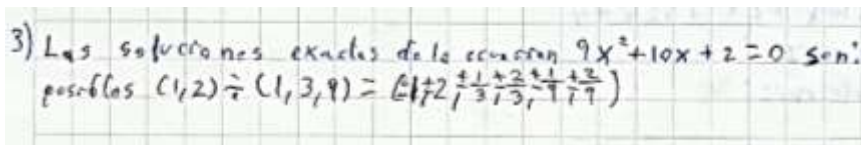 3) Las soluciones exactas de la ecuación 9x²+10x+2=0 son:
posibles (1,2)÷(1,3,9) = (±1,±2,±1/3,±2/3,±1/9,±2/9)